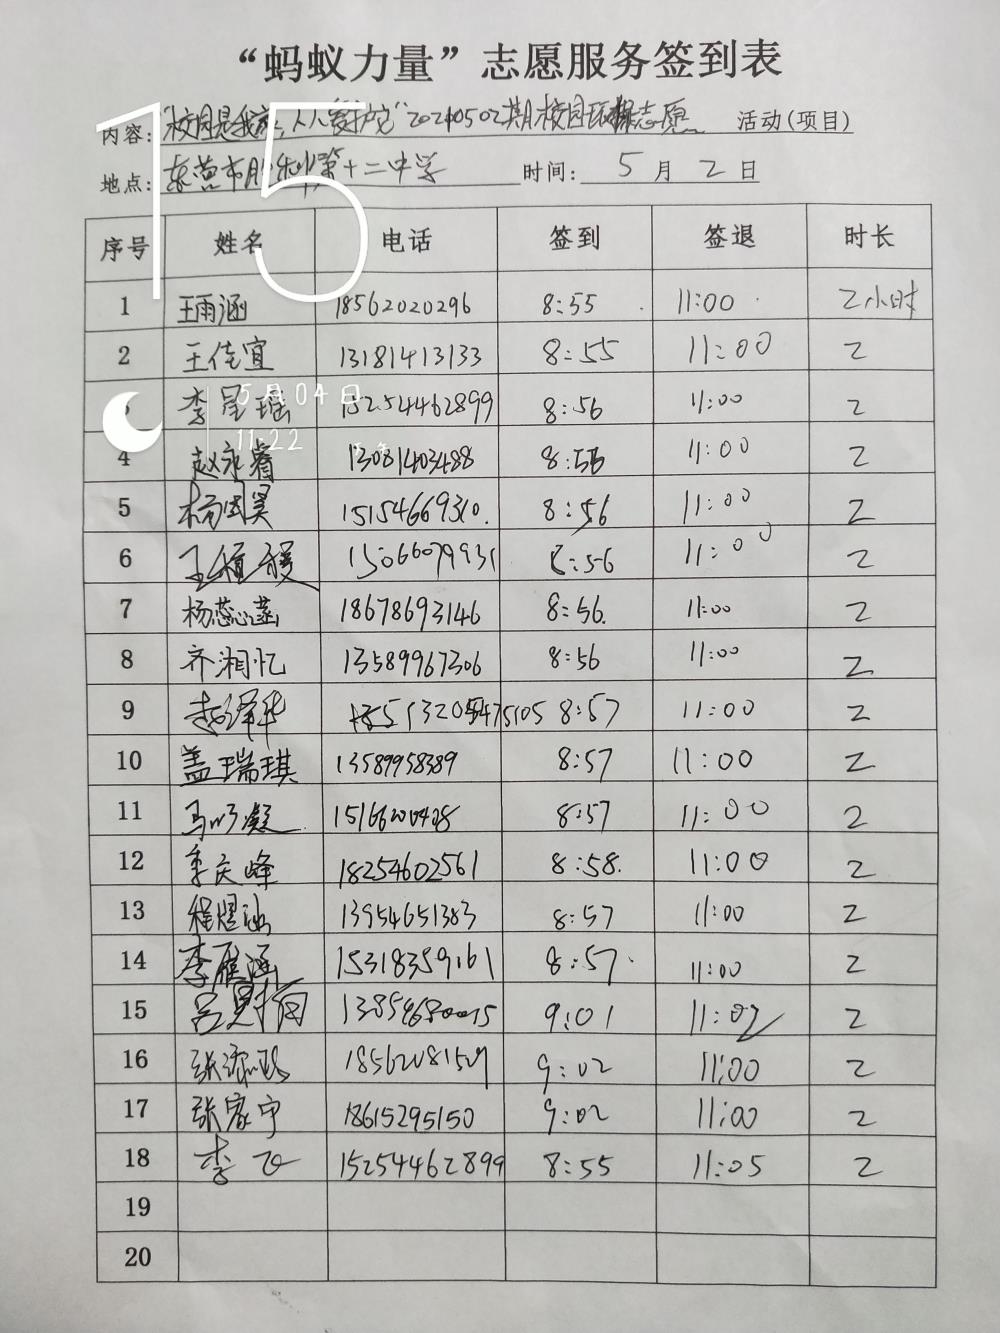 “蚂蚁力量”志愿服务签到表
内容：“校园是我家，人人爱护它”20240502期校园环境志愿 活动(项目)
地点：东营市胜利第十二中学 时间：5月2日
15
序号 姓名 电话 签到 签退 时长
1 王雨涵 18562020296 8:55 11:00 2小时
2 王佳宜 13181413133 8:55 11:00 2
李星瑶 15254462899 8:56 11:00 2
5月04日
11:22
4 赵永睿 13081403488 8:56 11:00 2
5 杨国昊 15154669310 8:56 11:00 2
6 王 15066079931 8:56 11:00 2
7 杨蕊菡 18678693146 8:56 11:00 2
8 齐湘忆 13589967306 8:56 11:00 2
9 赵泽华 8:57 11:00 2
10 盖瑞琪 13589958389 8:57 11:00 2
11 马 凝 8:57 11:00 2
12 李庆峰 18254602561 8:58 11:00 2
13 程煜涵 13954651383 8:57 11:00 2
14 李雁涵 15318359161 8:57 11:00 2
15 吕 9:01 11:02 2
16 张 9:02 11:00 2
17 张家宁 18615295150 9:02 11:00 2
18 李飞 15254462899 8:55 11:05 2
19
20